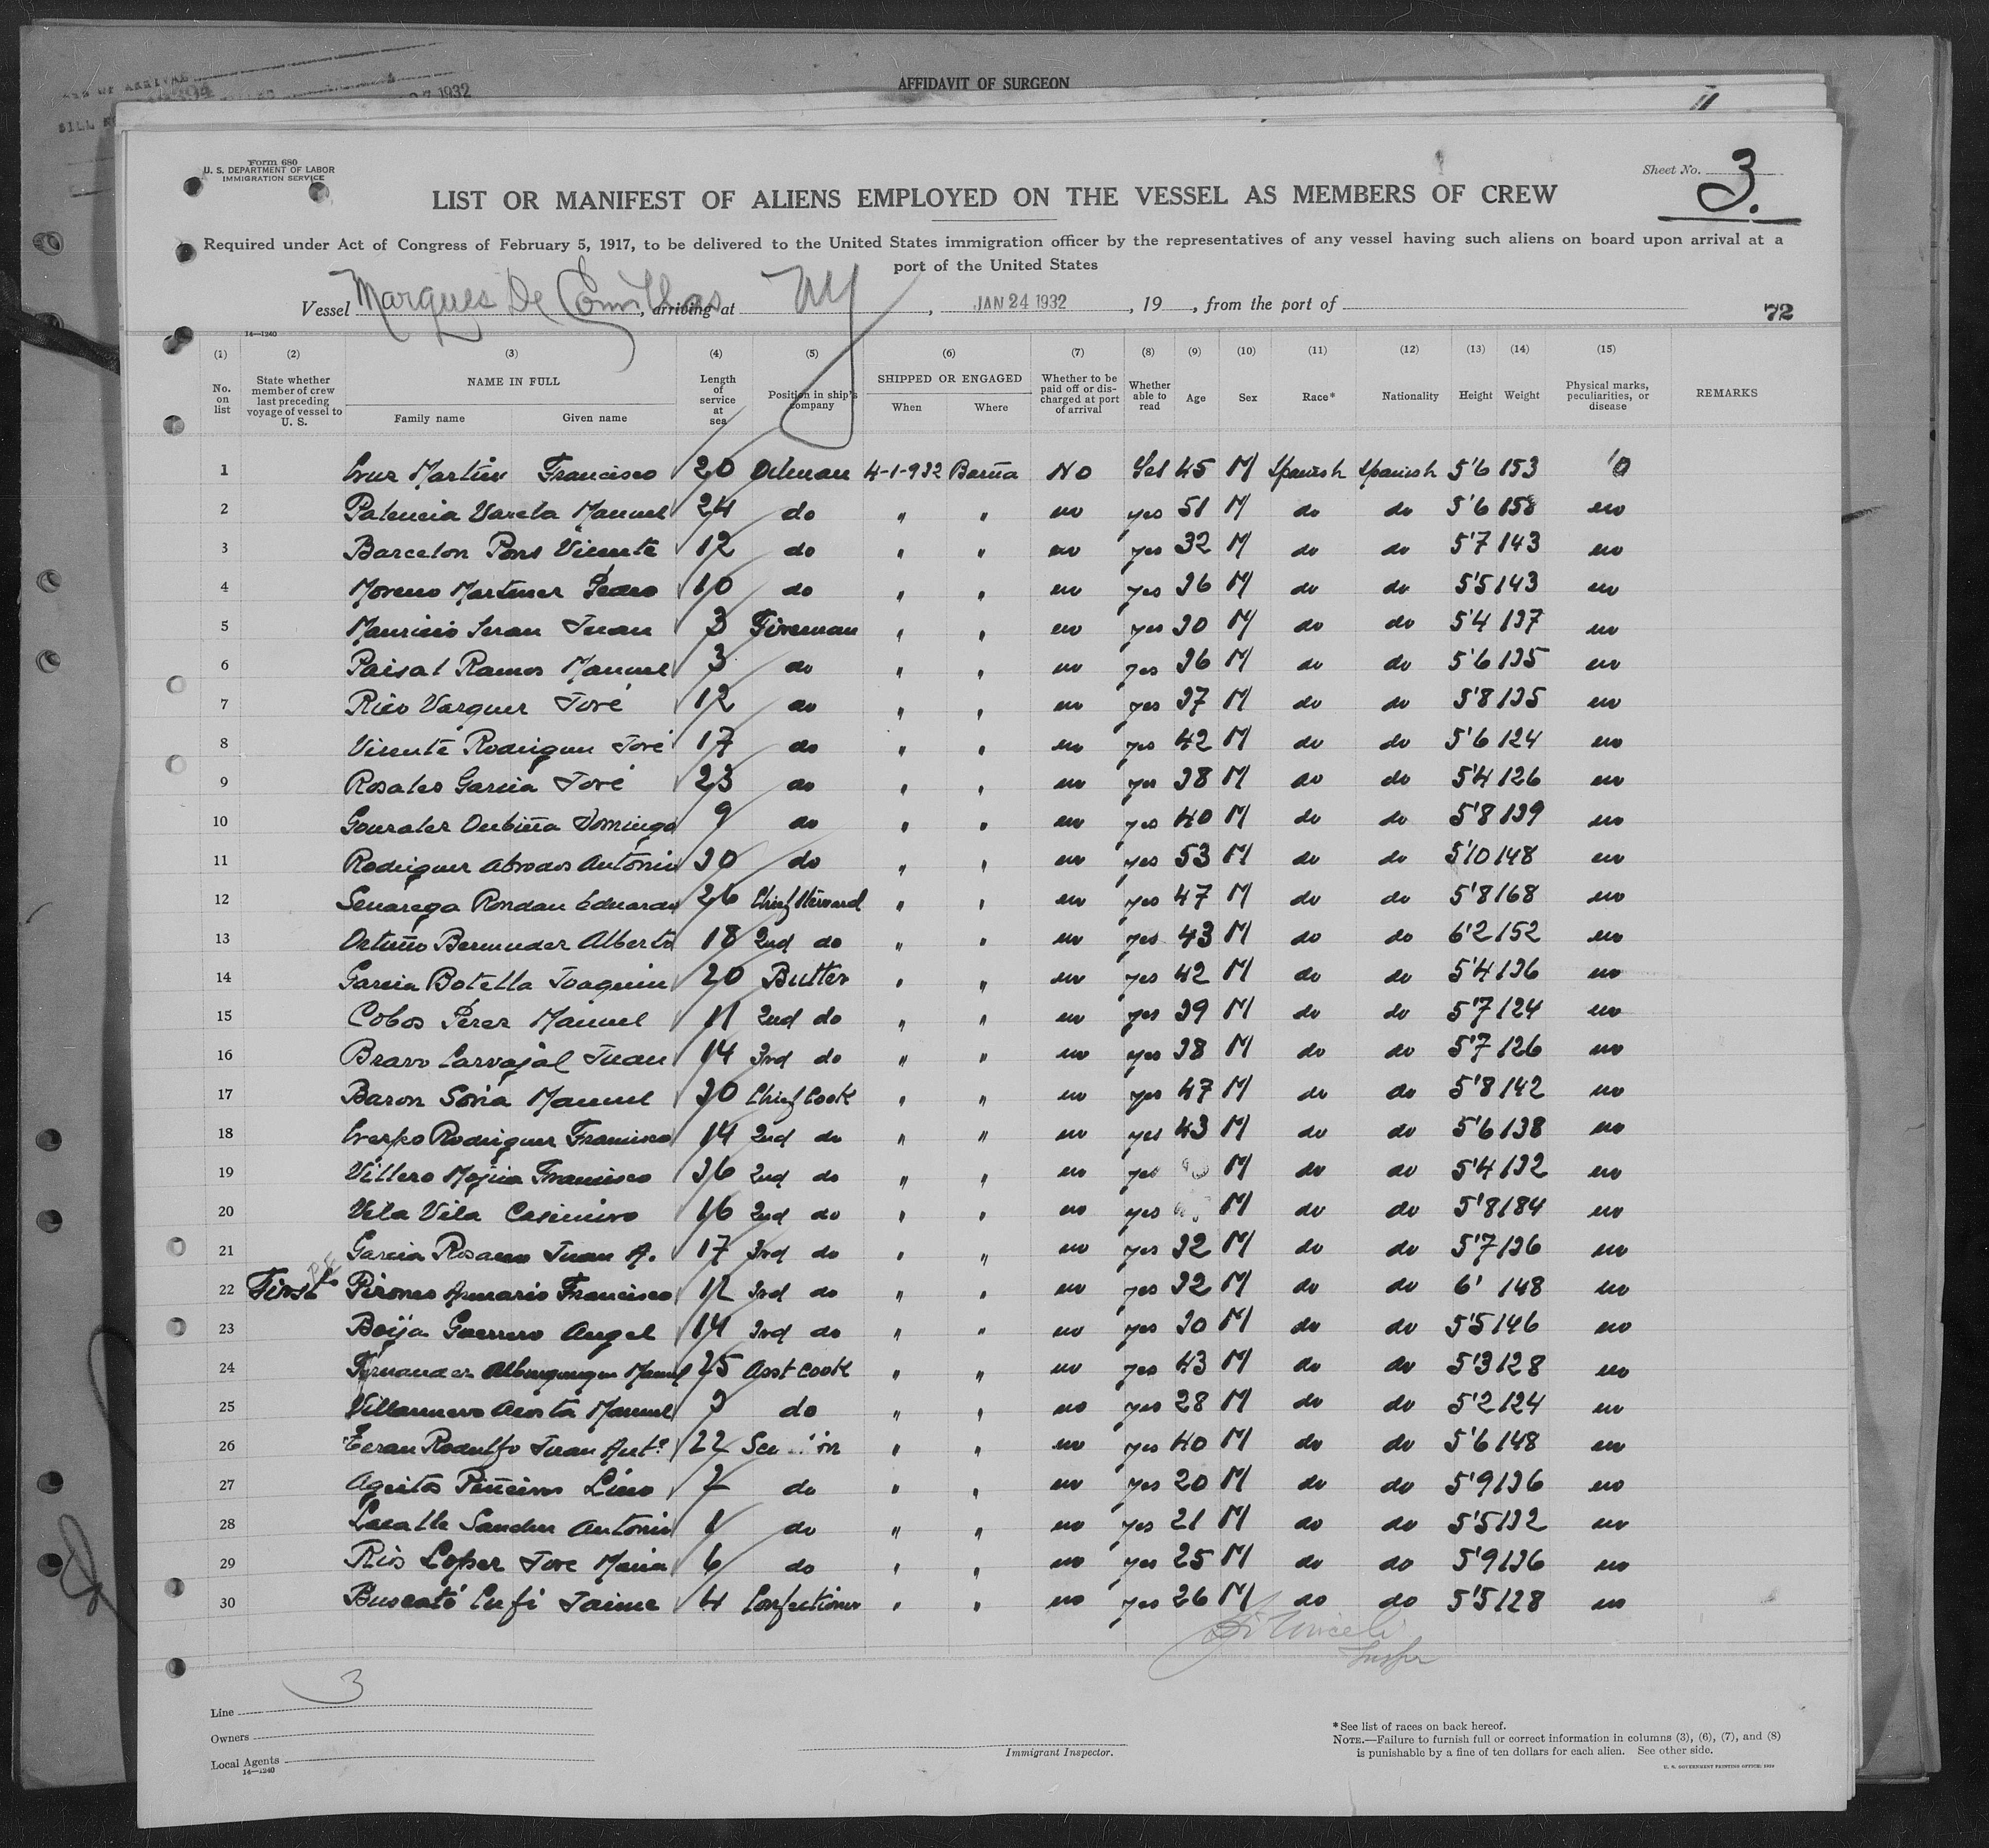 AFFIDAVIT OF SURGEON
1932
11
Form 680
U. S. DEPARTMENT OF LABOR
IMMIGRATION SERVICE
Sheet No. 3.
LIST OR MANIFEST OF ALIENS EMPLOYED ON THE VESSEL AS MEMBERS OF CREW
Required under Act of Congress of February 5, 1917, to be delivered to the United States immigration officer by the representatives of any vessel having such aliens on board upon arrival at a
port of the United States
Vessel Marques De Comillas, arriving at NY, JAN 24 1932, 19, from the port of
72
14—1240
(1) (2) (3) (4) (5) (6) (7) (8) (9) (10) (11) (12) (13) (14) (15)
No. on list State whether member of crew last preceding voyage of vessel to U. S. NAME IN FULL Family name Given name Length of service at sea Position in ship's company SHIPPED OR ENGAGED When Where Whether to be paid off or discharged at port of arrival Whether able to read Age Sex Race* Nationality Height Weight Physical marks, peculiarities, or disease REMARKS
1 Cruz Martin Francisco 20 Oilman 4-1-932 Barna No Yes 45 M Spanish Spanish 5'6 153
2 Palencia Varela Manuel 24 do " " no yes 51 M do do 5'6 158 no
3 Barcelon Pons Vicente 12 do " " no yes 32 M do do 5'7 143 no
4 Moreno Martinez Pedro 10 do " " no yes 36 M do do 5'5 143 no
5 Mauricio Juan 3 Fireman " " no yes 30 M do do 5'4 137 no
6 Paisal Ramos Manuel 3 do " " no yes 36 M do do 5'6 135 no
7 Rico Vazquez José 12 do " " no yes 37 M do do 5'8 135 no
8 Vicente Rodriguez José 17 do " " no yes 42 M do do 5'6 124 no
9 Rosales Garcia José 23 do " " no yes 38 M do do 5'4 126 no
10 Gonzalez Domingo 9 do " " no yes 40 M do do 5'8 139 no
11 Rodriguez Antonio 30 do " " no yes 53 M do do 5'10 148 no
12 Senarega Rondan Eduardo 26 Chief Steward " " no yes 47 M do do 5'8 168 no
13 Ortuño Bermudez Alberto 18 2nd do " " no yes 43 M do do 6'2 152 no
14 Garcia Botella Joaquin 20 Butler " " no yes 42 M do do 5'4 136 no
15 Cobos Perez Manuel 11 2nd do " " no yes 39 M do do 5'7 124 no
16 Bravo Carvajal Juan 14 3rd do " " no yes 38 M do do 5'7 126 no
17 Baron Soria Manuel 30 Chief Cook " " no yes 47 M do do 5'8 142 no
18 Crespo Rodriguez Francisco 14 2nd do " " no yes 43 M do do 5'6 138 no
19 Villero Francisco 36 2nd do " " no yes M do do 5'4 132 no
20 Vila Vila Casimiro 16 2nd do " " no yes M do do 5'8 184 no
21 Garcia Juan A. 17 3rd do " " no yes 32 M do do 5'7 136 no
22 First Francisco 12 3rd do " " no yes 32 M do do 6' 148 no
23 Guerrero Angel 14 3rd do " " no yes 30 M do do 5'5 146 no
24 Fernandez Manuel 25 Asst Cook " " no yes 43 M do do 5'3 128 no
25 Villanueva Acosta Manuel 3 do " " no yes 28 M do do 5'2 124 no
26 Teran Rodulfo Juan Antº 22 " " no yes 40 M do do 5'6 148 no
27 Piñeiro Lino do " " no yes 20 M do do 5'9 136 no
28 Lacalle Sanchez Antonio 1 do " " no yes 21 M do do 5'5 132 no
29 Rios Lopez Jose Maria 6 do " " no yes 25 M do do 5'9 136 no
30 Buscató Cufi Jaime 4 Confectioner " " no yes 26 M do do 5'5 128 no
3
Line
Owners
Local Agents
14—1240
Immigrant Inspector.
*See list of races on back hereof.
NOTE.—Failure to furnish full or correct information in columns (3), (6), (7), and (8)
is punishable by a fine of ten dollars for each alien. See other side.
U. S. GOVERNMENT PRINTING OFFICE: 1929